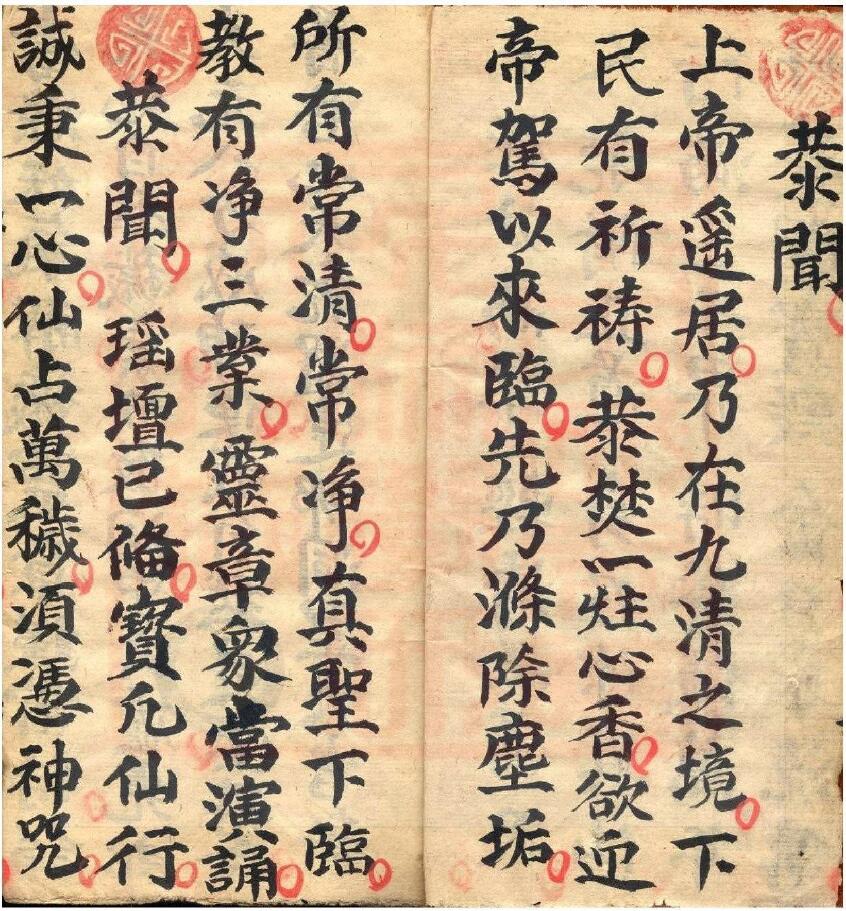 恭聞
上帝遥居乃在九清之境下
民有祈祷恭焚一炷心香欲迎
帝駕以來臨先乃滌除塵垢
所有常清常净真聖下臨
教有净三業靈章眾當演誦
恭聞瑶壇已俻寳凡仙行
誠秉一心仙占萬穢須憑神咒